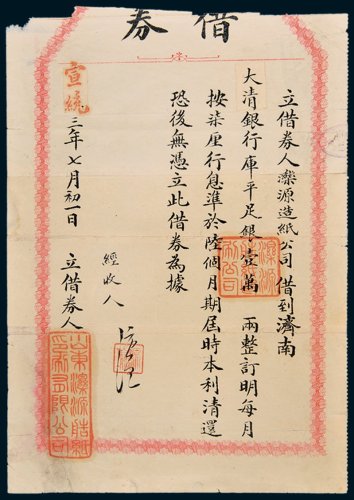 借券
立借券人濼源造紙公司借到濟南
大清銀行庫平足銀壹萬兩整訂明每月
按柒厘行息準於陸個月期屆時本利清還
恐後無憑立此借券為據
經收人
宣統三年七月初一日 立借券人